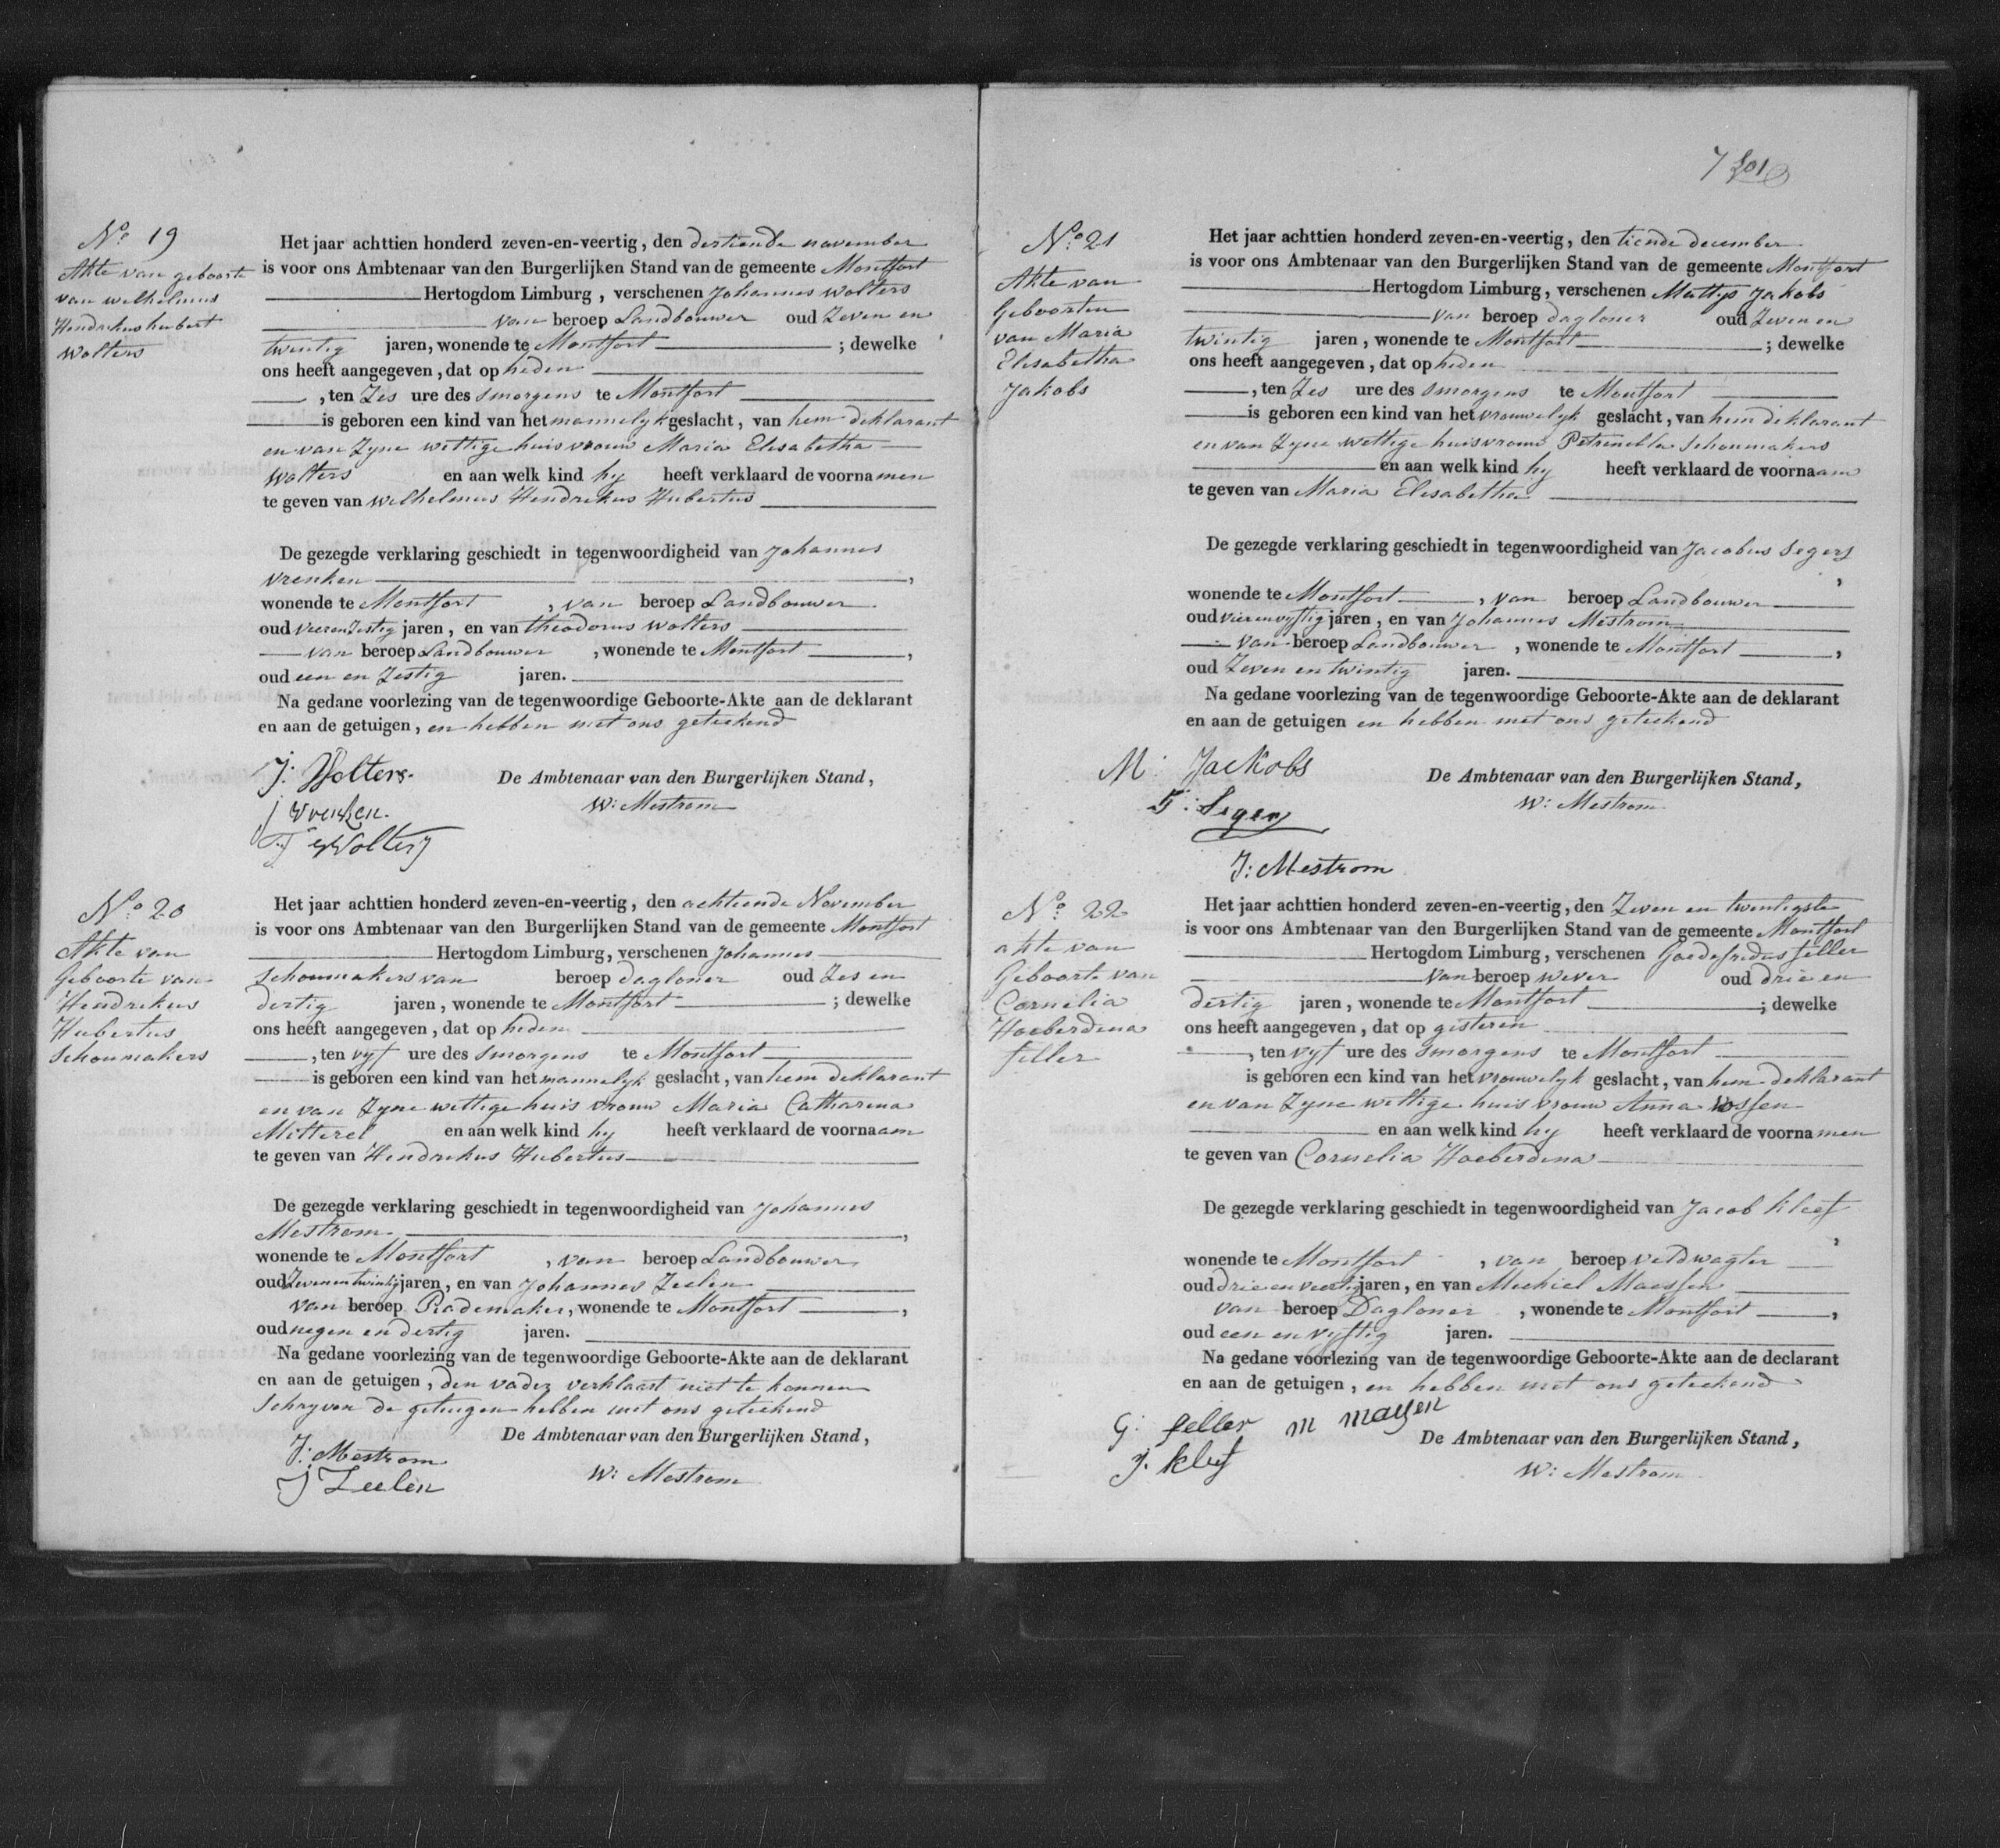 No. 19
Akte van geboorte
van wilhelmus
Hendrikus hubert
wolters
Het jaar achttien honderd zeven-en-veertig, den dertiende november
is voor ons Ambtenaar van den Burgerlijken Stand van de gemeente Montfort
Hertogdom Limburg, verschenen Johannes wolters
van beroep Landbouwer oud Zeven en
twintig jaren, wonende te Montfort ; dewelke
ons heeft aangegeven, dat op heden
, ten Zes ure des smorgens te Montfort
is geboren een kind van het mannelyk geslacht, van hem deklarant
en van Zyne wettige huisvrouw Maria Elisabetha
Wolters en aan welk kind hy heeft verklaard de voornamen
te geven van Wilhelmus Hendrikus Hubertus
De gezegde verklaring geschiedt in tegenwoordigheid van Johannes
vrenken ,
wonende te Montfort , van beroep Landbouwer
oud vier en Zestig jaren, en van theodorus wolters
van beroep Landbouwer , wonende te Montfort ,
oud een en Zestig jaren.
Na gedane voorlezing van de tegenwoordige Geboorte-Akte aan de deklarant
en aan de getuigen, en hebben met ons geteekend
J: Wolters.
De Ambtenaar van den Burgerlijken Stand,
W: Mestrom
j vrenken.
T Wolters
No. 20
Akte van
Geboorte van
Hendrikus
Hubertus
Schoumakers
Het jaar achttien honderd zeven-en-veertig, den achtiende November
is voor ons Ambtenaar van den Burgerlijken Stand van de gemeente Montfort
Hertogdom Limburg, verschenen Johannes
Schoumakers van beroep dagloner oud Zes en
dertig jaren, wonende te Montfort ; dewelke
ons heeft aangegeven, dat op heden
, ten vyf ure des smorgens te Montfort
is geboren een kind van het mannelyk geslacht, van hem deklarant
en van Zyne wettige huis vrouw Maria Catharina
Mitterel en aan welk kind hy heeft verklaard de voornaam
te geven van Hendrikus Hubertus
De gezegde verklaring geschiedt in tegenwoordigheid van Johannes
Mestrom ,
wonende te Montfort , van beroep Landbouwer
oud Zeven en twintig jaren, en van Johannes Zeelen
van beroep Rademaker, wonende te Montfort ,
oud negen en dertig jaren.
Na gedane voorlezing van de tegenwoordige Geboorte-Akte aan de deklarant
en aan de getuigen, den vader verklaart niet te konnen
Schryven de getuigen hebben met ons geteekend
De Ambtenaar van den Burgerlijken Stand,
J: Mestrom
W: Mestrom
J Zeelen
7
No. 21
Akte van
Geboorten
van Maria
Elisabetha
Jakobs
Het jaar achttien honderd zeven-en-veertig, den tiende december
is voor ons Ambtenaar van den Burgerlijken Stand van de gemeente Montfort
Hertogdom Limburg, verschenen Mattys Jakobs
van beroep dagloner oud Zeven en
twintig jaren, wonende te Montfort ; dewelke
ons heeft aangegeven, dat op heden
, ten Zes ure des smorgens te Montfort
is geboren een kind van het vrouwelyk geslacht, van hem deklarant
en van Zyne wettige huisvrouw Petronella Schoumakers
en aan welk kind hy heeft verklaard de voornaam
te geven van Maria Elisabetha
De gezegde verklaring geschiedt in tegenwoordigheid van Jacobus Segers
,
wonende te Montfort , van beroep Landbouwer
oud vier en vyftig jaren, en van Johannes Mestrom
van beroep Landbouwer , wonende te Montfort ,
oud Zeven en twintig jaren.
Na gedane voorlezing van de tegenwoordige Geboorte-Akte aan de deklarant
en aan de getuigen en hebben met ons geteekend
M: Jackobs
De Ambtenaar van den Burgerlijken Stand,
W: Mestrom
J: Segers
J: Mestrom
No. 22
akte van
Geboorte van
Cornelia
Hoeberdena
feller
Het jaar achttien honderd zeven-en-veertig, den Zeven en twentigste
is voor ons Ambtenaar van den Burgerlijken Stand van de gemeente Montfort
Hertogdom Limburg, verschenen Goedefredus feller
van beroep wever oud drie en
dertig jaren, wonende te Montfort ; dewelke
ons heeft aangegeven, dat op gisteren
, ten vyf ure des smorgens te Montfort
is geboren een kind van het vrouwelyk geslacht, van hem deklarant
en van Zyne wettige huis vrouw Anna Vossen
en aan welk kind hy heeft verklaard de voornamen
te geven van Cornelia Hoeberdena
De gezegde verklaring geschiedt in tegenwoordigheid van Jacob Kleef
,
wonende te Montfort , van beroep veldwagter
oud drie en veertig jaren, en van Mechiel Maessen
van beroep Dagloner , wonende te Montfort ,
oud een en vyftig jaren.
Na gedane voorlezing van de tegenwoordige Geboorte-Akte aan de declarant
en aan de getuigen, en hebben met ons geteekend
G: feller m maesen
De Ambtenaar van den Burgerlijken Stand,
J. Kleef
W: Mestrom